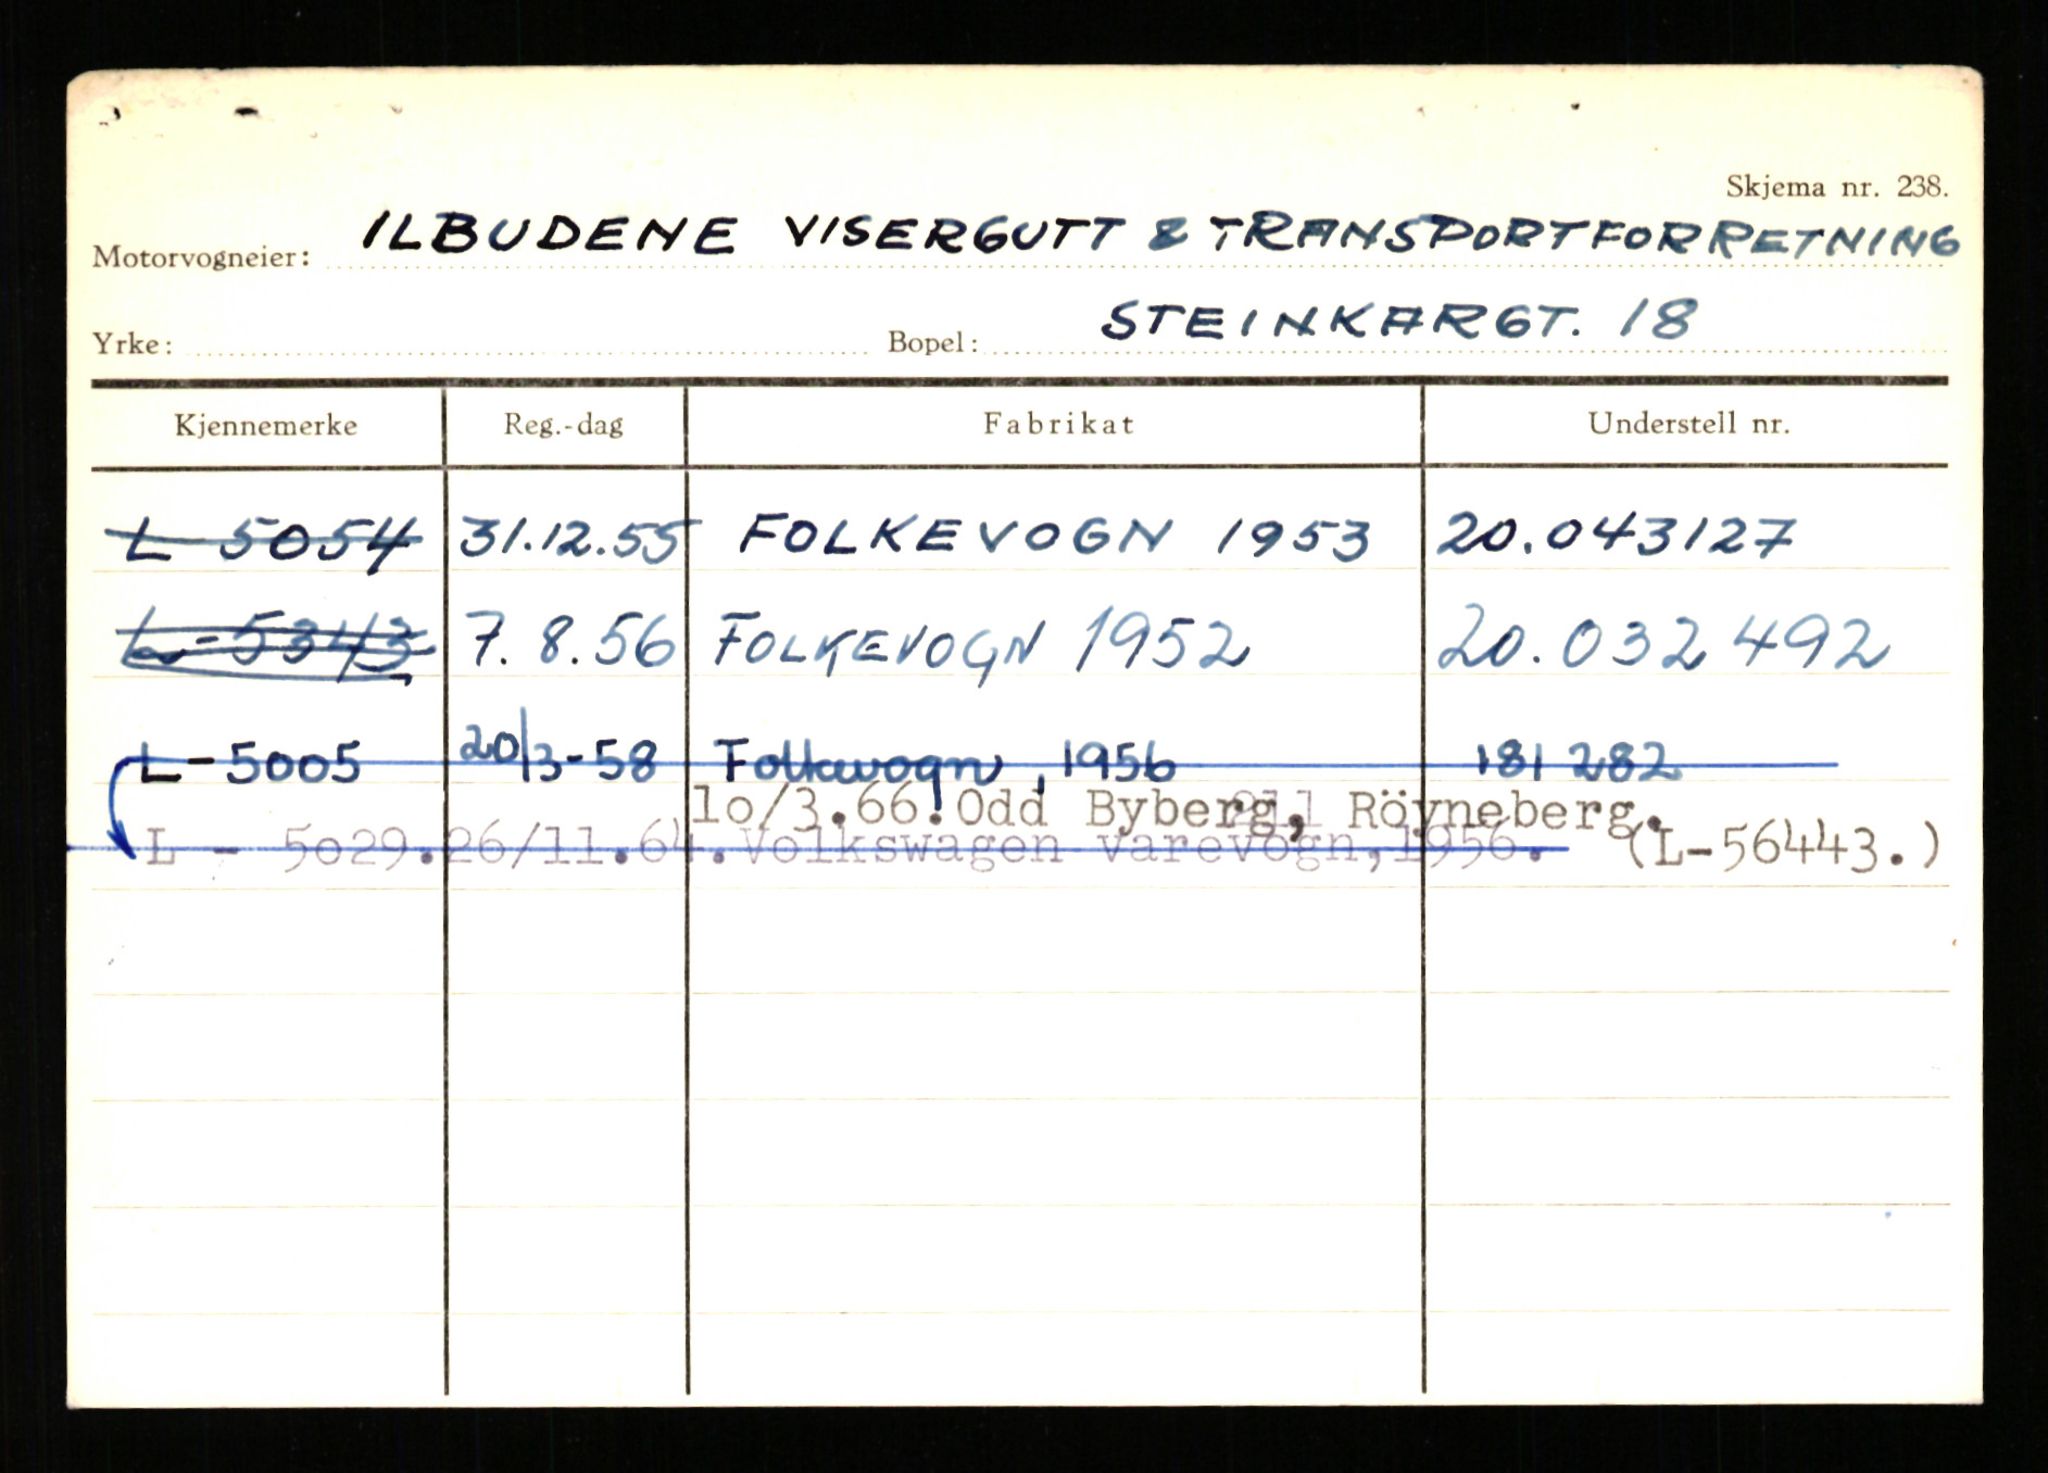 Skjema nr. 238.
Motorvogneier: ILBUDENE VISERGUTT & TRANSPORTFORRETNING
Yrke: Bopel: STEINKARGT. 18
Kjennemerke Reg.-dag Fabrikat Understell nr.
L 5054 31.12.55 FOLKEVOGN 1953 20.043127
L-5343 7.8.56 FOLKEVOGN 1952 20.032492
L-5005 20/3-58 Folkevogn, 1956 181 282
10/3.66. Odd Byberg, Röyneberg.
L - 5029. 26/11.64. Volkswagen varevogn, 1956. (L-56443.)